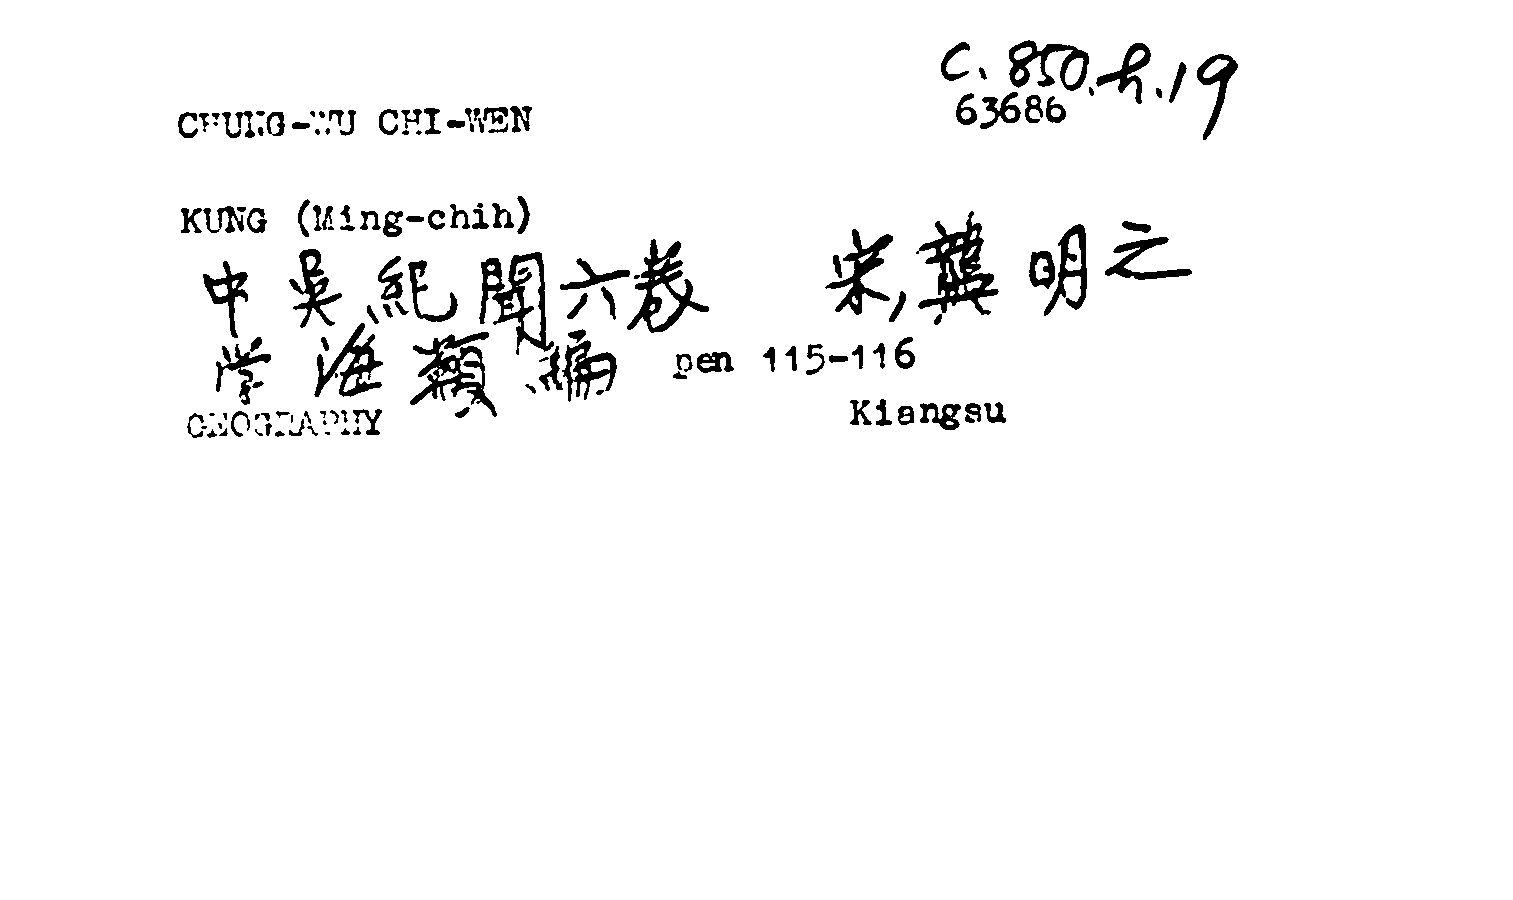 C. 850.h.19
63686
CHUNG-WU CHI-WEN
KUNG (Ming-chih)
中吳紀聞六卷 宋,龔明之
学海類編 pen 115-116
GEOGRAPHY Kiangsu